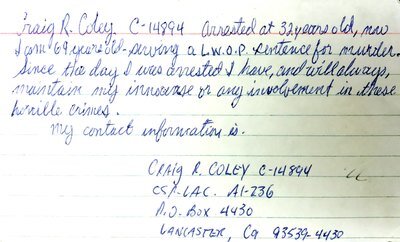 Craig R. Coley C-14894 Arrested at 32 years old, now
I am 69 years old serving a L.W.O.P sentence for murder.
Since the day I was arrested I have, and will always,
maintain my innocense or any involvement in these
horrible crimes.
My contact information is.
CRAIG R. COLEY C-14894
CSP-LAC. A1-236
P.O. BOX 4430
LANCASTER, Ca 93539-4430